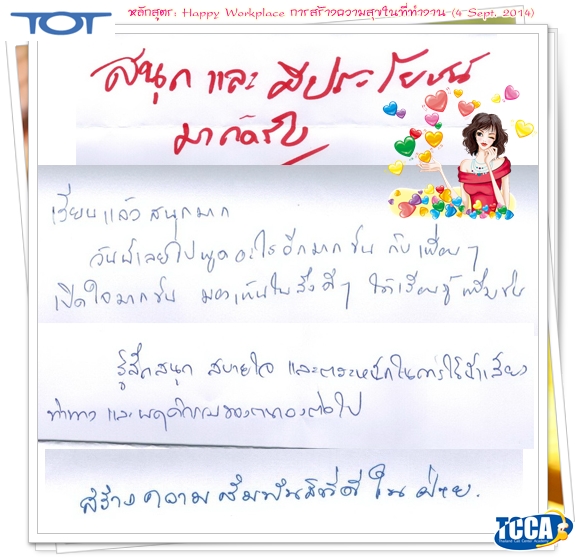 TOT
หลักสูตร: Happy Workplace การสร้างความสุขในที่ทำงาน (4 Sept. 2014)
สนุก และ มีประโยชน์
มากครับ
เรียนแล้ว สนุกมาก
วันนี้เลยไปพูดอะไรอีกมากขึ้น กับเพื่อนๆ
เปิดใจมากขึ้น มองเห็นในสิ่งดีๆ ได้เรียนรู้เพิ่มขึ้น
รู้สึกสนุก สบายใจ และตระหนักในการใช้น้ำเสียง
ท่าทาง และพฤติกรรมของตนเองต่อไป
สร้างความสัมพันธ์ที่ดี ใน ฝ่าย.
TCCA
Thailand Call Center Academy